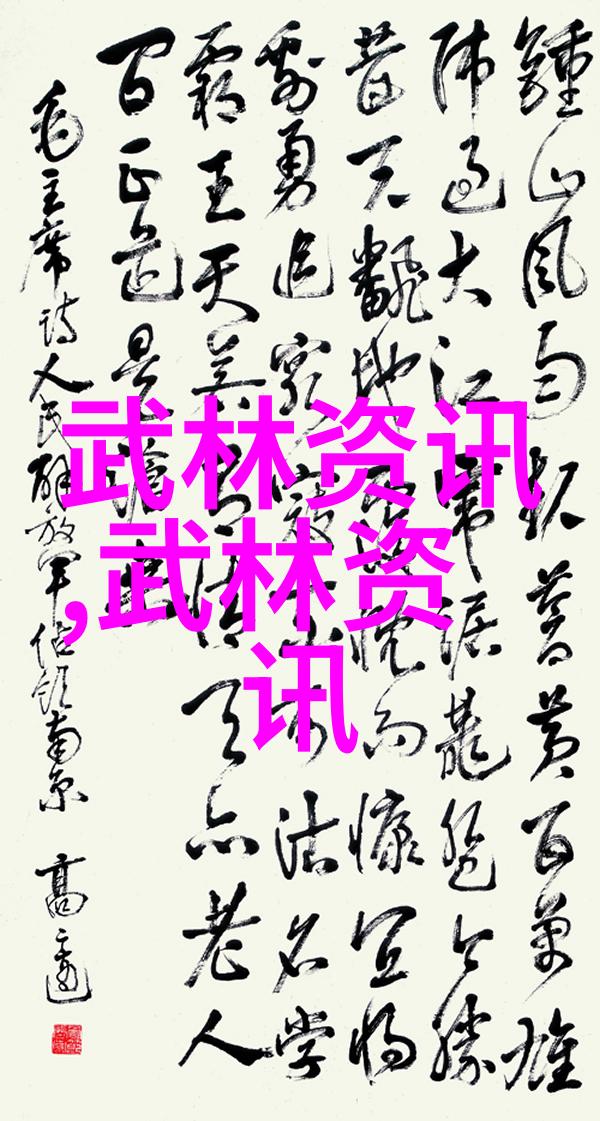 鍾山風雨起蒼黄百萬雄
师過大江虎踞龍盤今勝
昔天飜地覆慨而慷宜将
剩勇追窮寇不可沽名学
霸王天若有情天亦老人
间正道是滄桑
毛主席詩人民解放军佔領南京 高
武林资讯
,武林资
讯